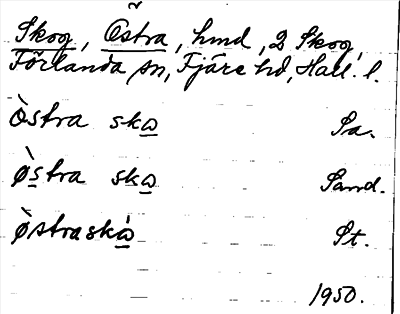 Skog, Östra, hmd, 2 Skog,
Förlanda sn, Fjäre hd, Hall. l.
òstra skω Pa.
ø̀stra skω Sand.
ø̀straskὼ St.
1950.